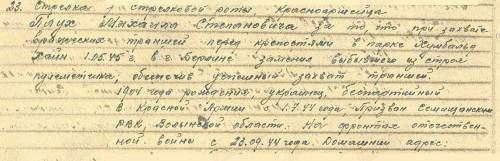 23. Стрелка стрелковой роты красноармейца
Плух Михаила Степановича за то что при захвате
вражеских траншей перед крепостями в парке Хумбальд
Хайн 1.05.45 г. в г. Берлине заменив выбывшего из строя
пулеметчика, обеспечив успешный захват траншей.
1904 года рождения украинец, беспартийный
в Красной Армии с 1.7.44 года Призван
РВК Волынской области. На фронтах отечествен-
ной войны с 23.09.44 года. Домашний адрес: